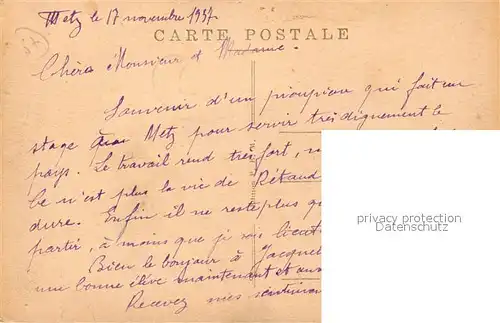 Metz le 17 novembre 1937
CARTE POSTALE
Chers Monsieur et Madame.
Souvenir d'un pioupiou qui fait un
stage à Metz pour servir très dignement le
pays. Le travail rend très fort,
Ce n'est plus la vie de Rétaud
dure. Enfin il ne reste plus
partir, à moins que je sois
Bien le bonjour à Jacquel
une bonne élève maintenant et aus
Recevez mes sentimen
privacy protection